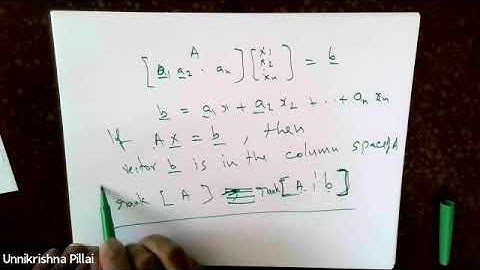 A
[a₁ a₂ . aₙ] [x₁ x₂ xₙ] = b
b = a₁ x + a₂ x₂ + .. + aₙ xₙ
If A x = b , then
vector b is in the column space of A
rank [ A ] = rank [ A ¦ b ]
Unnikrishna Pillai